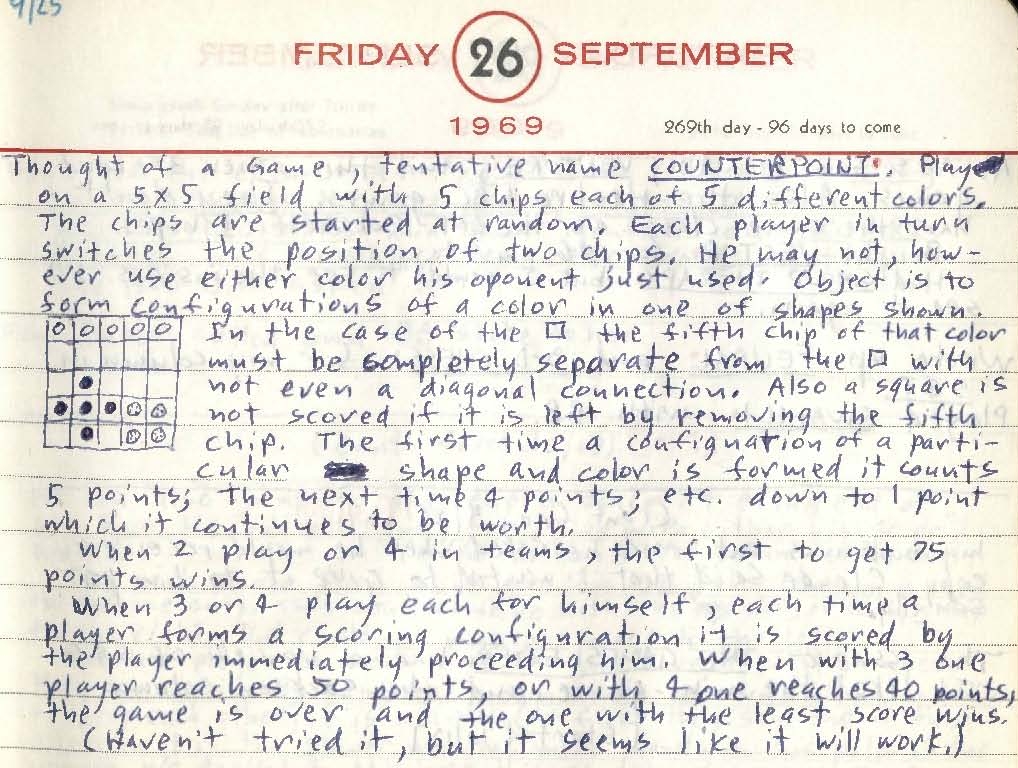 9/25
FRIDAY 26 SEPTEMBER
1969
269th day - 96 days to come
Thought of a Game, tentative name COUNTERPOINT. Played
on a 5x5 field with 5 chips each of 5 different colors.
The chips are started at random. Each player in turn
switches the position of two chips. He may not, how-
ever use either color his oponent just used. Object is to
form configurations of a color in one of shapes shown.
In the case of the □ the fifth chip of that color
must be completely separate from the □ with
not even a diagonal connection. Also a square is
not scored if it is left by removing the fifth
chip. The first time a configuation of a parti-
cular shape and color is formed it counts
5 points; the next time 4 points; etc. down to 1 point
which it continues to be worth.
When 2 play or 4 in teams, the first to get 75
points wins.
When 3 or 4 play each for himself, each time a
player forms a scoring configuration it is scored by
the player immediately proceeding him. When with 3 one
player reaches 50 points, or with 4 one reaches 40 points,
the game is over and the one with the least score wins.
(Haven't tried it, but it seems like it will work.)